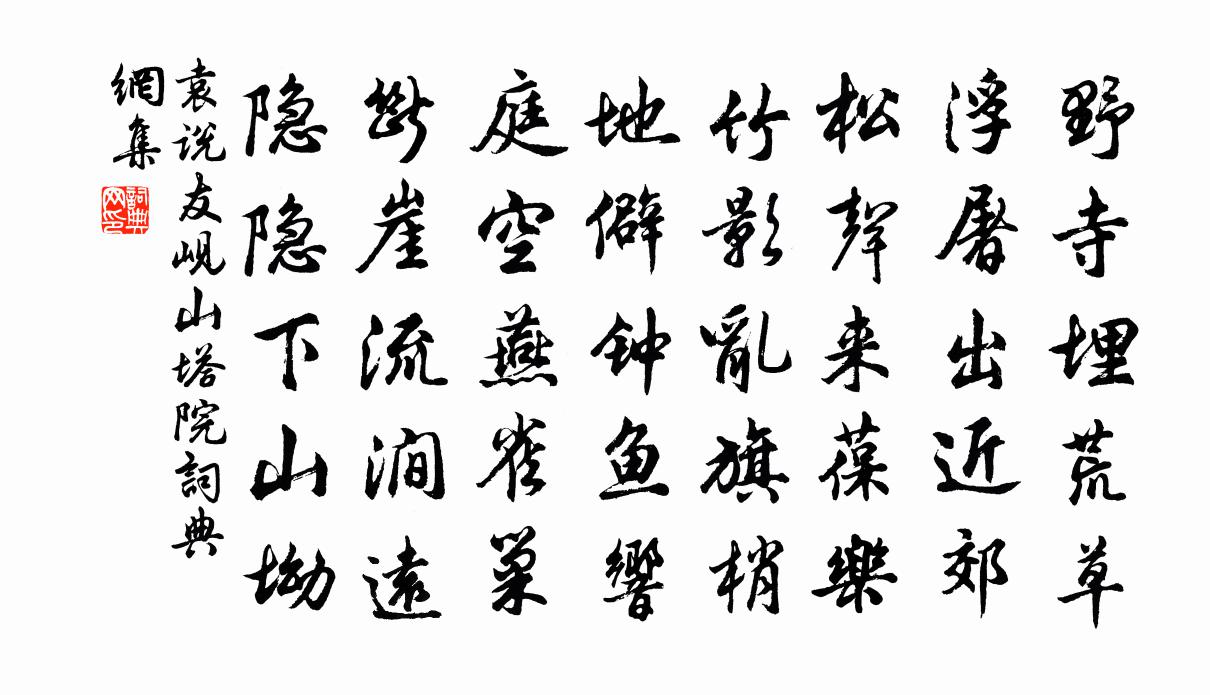 野寺埋荒草
浮屠出近郊
松聲来葆樂
竹影亂旗梢
地僻钟鱼響
庭空燕雀巢
斷崖流澗遠
隐隐下山坳
袁说友岘山塔院詞典
網集
詞典
网印